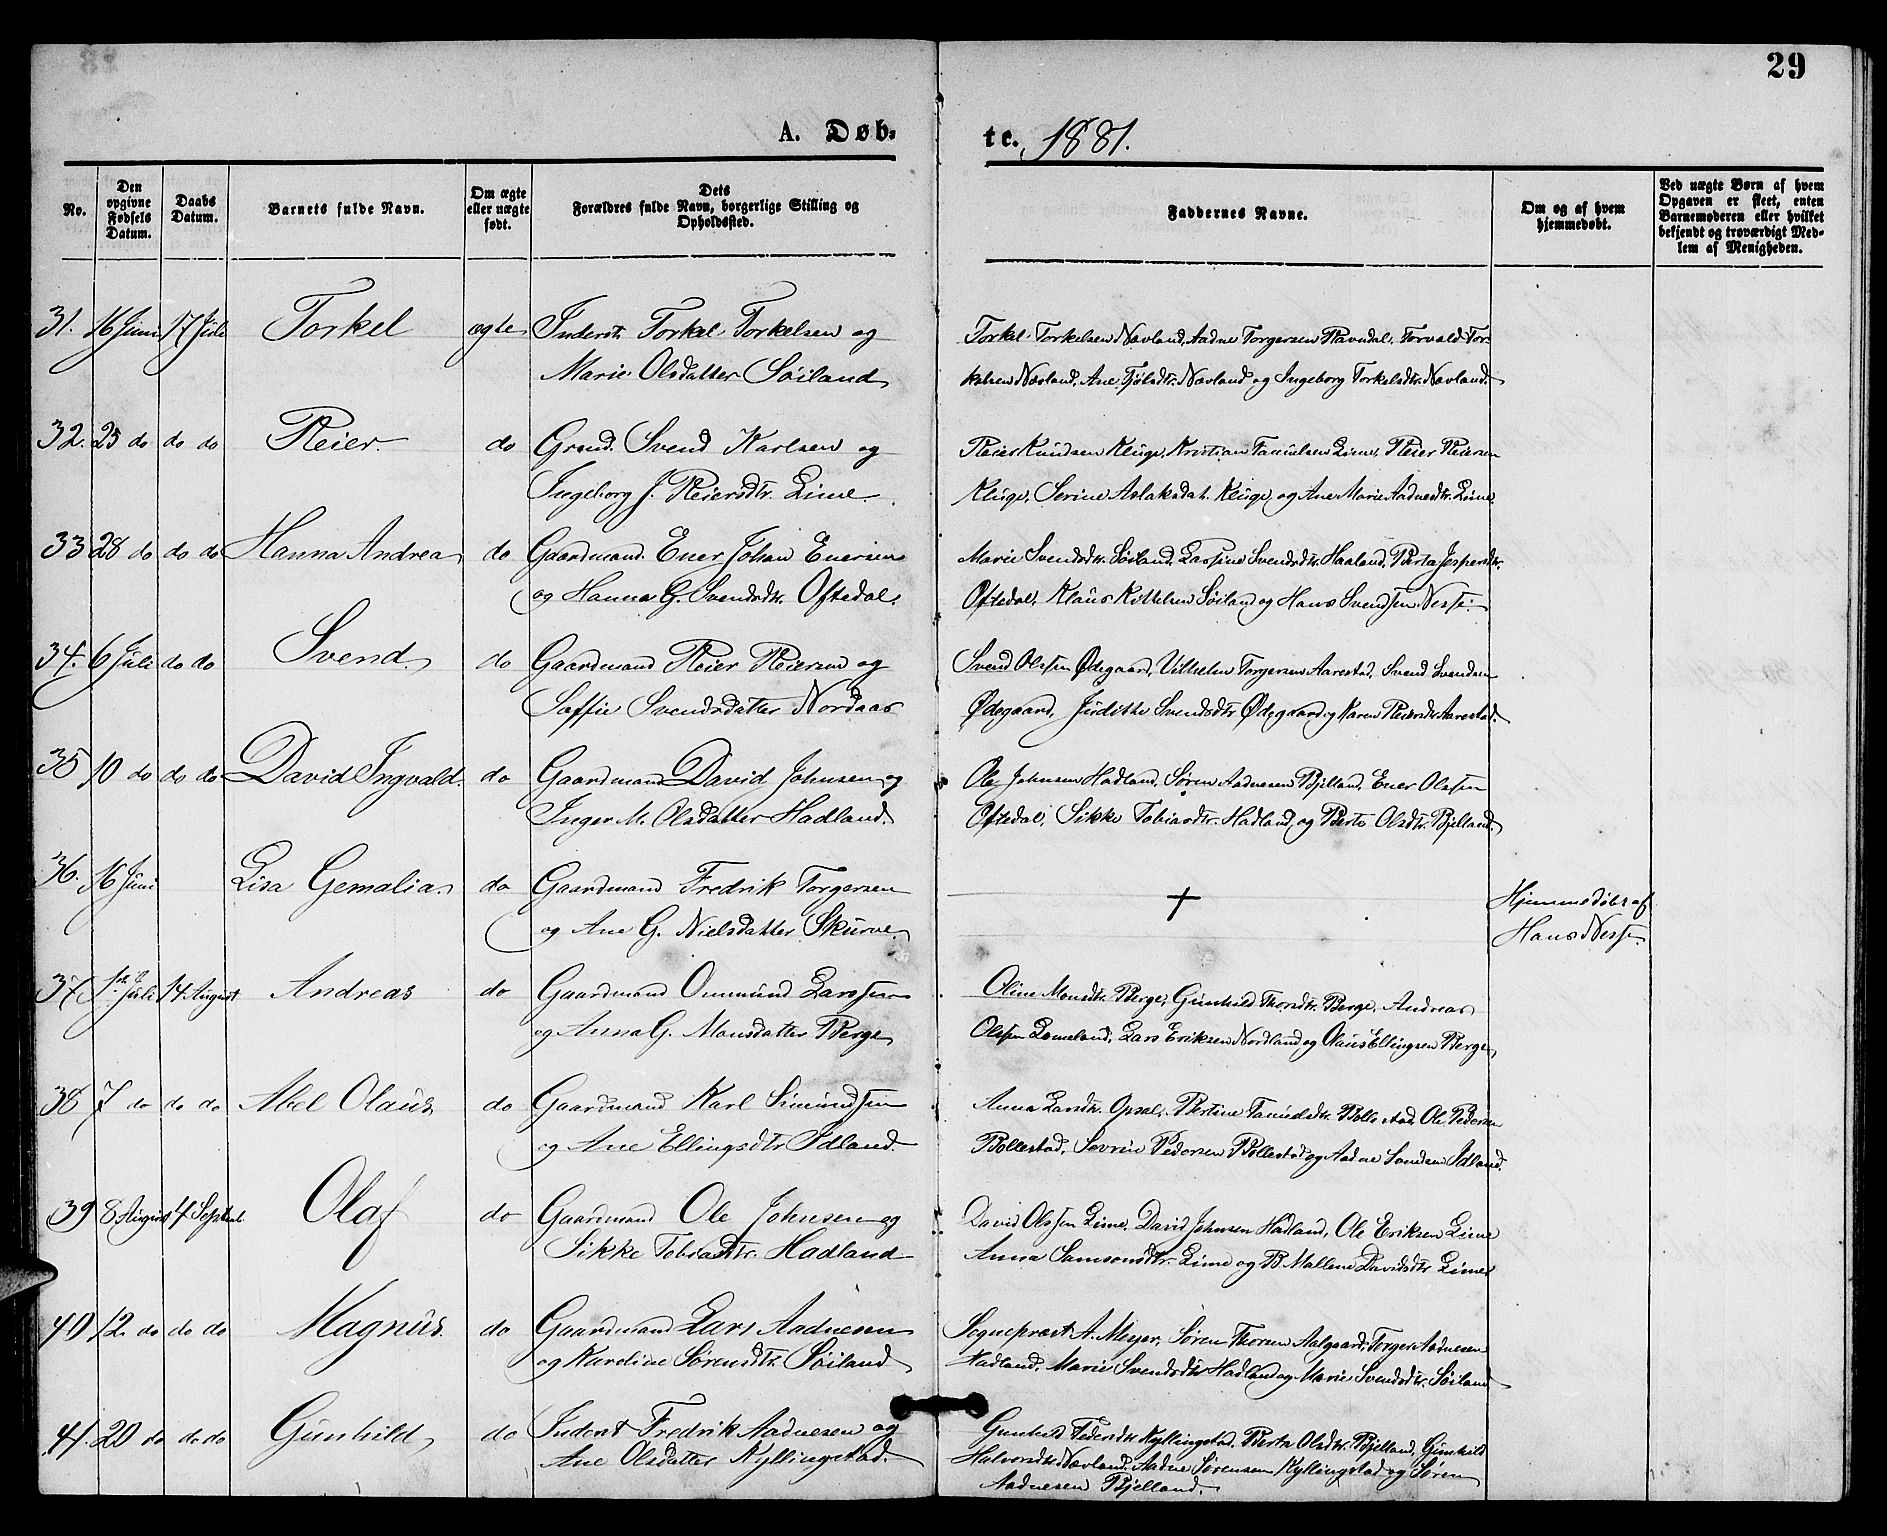 29
A. Døb-
te. 1881.
No.
Den opgivne Fødsels Datum.
Daabs Datum.
Barnets fulde Navn.
Om ægte eller uægte født.
Dets
Forældres fulde Navn, borgerlige Stilling og
Opholdssted.
Faddernes Navne.
Om og af hvem
hjemmedøbt.
Ved uægte Børn af hvem
Opgaven er skeet, enten
Barnemoderen eller hvilket
bekjendt og troværdigt Med-
lem af Menigheden.
31. 16 Juni 17 Juli Torkel ægte Inderst Torkel Torkelsen og
Marie Olsdatter Söiland
Torkel Torkelsen Nævland, Aadne Torgersen Ravndal, Torvald Tor-
kelsen Nævland, Ane Tjölsdtr. Nævland og Ingeborg Torkelsdtr. Nævland.
32. 25 do do do Reier do Grmd. Svend Karlsen og
Ingeborg J. Reiersdtr. Lime
Reier Knudsen Kluge, Kristian Tanulsen Lime, Reier Reiersen
Kluge, Serine Aslaksdat. Kluge, og Ane Marie Aadnesdtr. Lime
33 28 do do do Hanna Andrea do Gaardmand Ener Johan Enersen
og Hanna G. Svendsdtr. Oftedal.
Marie Svendsdtr. Söiland, Larsine Svendsdtr. Haaland, Berta Jespersdtr.
Oftedal, Klaus Kittelsen Söiland og Hans Svendsen Nesse
34. 6 Juli do do Svend do Gaardmand Reier Reiersen og
Soffie Svendsdatter Nordaas
Svend Olsen Ødegaard, Vilhelm Torgersen Aarestad, Svend Svendsen
Ødegaard, Judithe Svendsdtr Ødegaard og Karen Reiersdtr. Aarestad.
35 10 do do do David Ingvald do Gaardmand David Johnsen og
Inger M. Olsdatter Hadland.
Ole Johnsen Hadland, Søren Aadnesen Bjelland, Ener Olsen
Oftedal, Sikke Tobiasdtr. Hadland, og Berte Olsdtr. Bjelland.
36. 16 Juni Lisa Gemalia do Gaardmand Fredrik Torgersen
og Ane G. Nielsdatter Skurve
†
Hjemmedöbt af
Hans Nesse
37 1ste Juli 14 August Andreas do Gaardmand Ommund Larssen
og Anna G. Monsdatter Berge
Oline Monsdtr. Berge, Gunhild Thorsdtr. Berge, Andreas
Olsen Lomeland, Lars Eriksen Nordland og Olaus Ellingsen Berge
38 7 do do do Abel Olaus do Gaardmand Karl Simundsen
og Ane Ellingsdtr Idland
Anna Larsdtr. Opsal, Bertine Tanulsdtr. Bollestad, Ole Pedersen
Bollestad, Sevrin Pedersen Bollestad og Aadne Svendsen Idland
39 8 August 4 Septemb Olaf do Gaardmand Ole Johnsen og
Sikke Tobiasdtr. Hadland
David Olssen Lime, David Johnsen Hadland, Ole Eriksen Lime
Anna Samsonsdtr. Lime og B Mallene Davidsdtr Lime
40 12. do do do Magnus do Gaardmand Lars Aadnesen
og Karoline Sørensdtr. Söiland
Sognepræst A. Meyer, Søren Thorsen Aalgaard, Torger Aadnesen
Hadland, Marie Svendsdtr Hadland og Marie Svendsdtr. Söiland
41. 20 do do do Gunhild do Inderst Fredrik Aadnesen og
Ane Olsdatter Kyllingstad.
Gunhild Pedersdtr Kyllingstad, Berta Olsdtr. Bjelland, Gunhild
Halvorsdtr Nævland, Aadne Sørensen Kyllingstad og Søren
Aadnesen Bjelland.